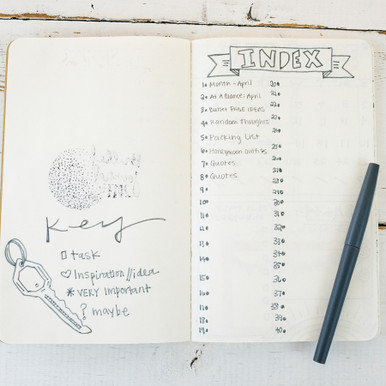 key
□ task
♡ Inspiration//idea
* VERY Important
? maybe
INDEX
1• Month - April
2• At A Glance: April
3•
4• Random Thoughts
5• Packing List
6• Honeymoon outfits
7• Quotes
8• Quotes
9•
10•
11•
12•
13•
14•
15•
16•
17•
18•
19•
20•
21•
22•
23•
24•
25•
26•
27•
28•
29•
30•
31•
32•
33•
34•
35•
36•
37•
38•
39•
40•